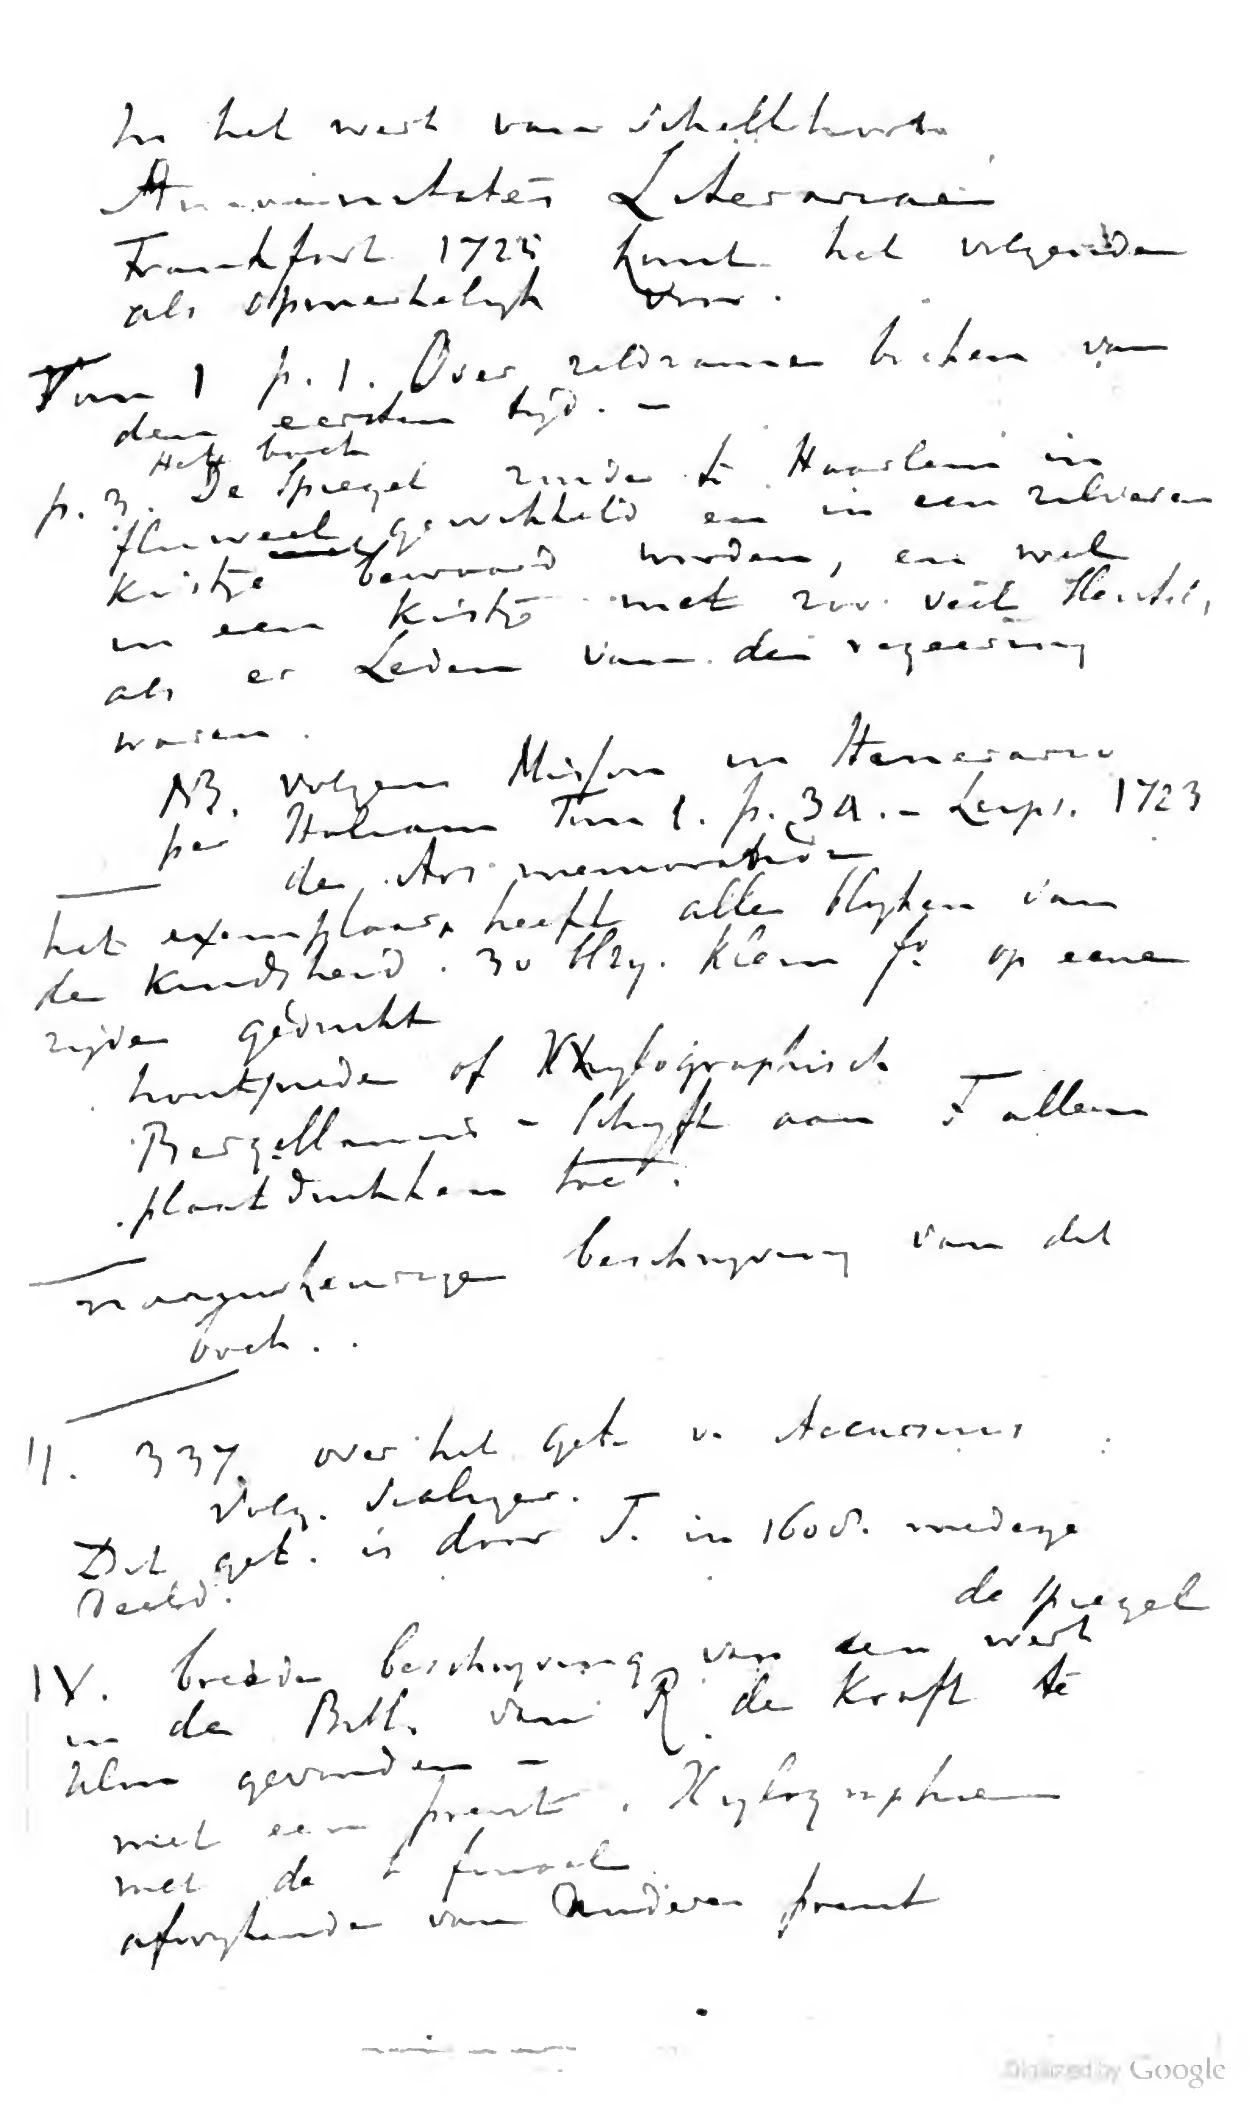 In het werk van Schellhorn
Amoenitates Literariae
Frankfort 1725 komt het volgende
als opmerkelijk voor.
Tom 1 p. 1. Over zeldzame boeken van
den eersten tijd. —
Het boek
p. 3. De Spiegel zoude te Haarlem in
fluweel gewikkeld en in een zilveren
Kistje bewaard worden, en wel
in een Kistje met zoo veel sleutels,
als er Leden van de regeering
waren.
NB. volgens Misson in Itinerario
per Italiam Tom 1. p. 34. – Leips. 1723
de Ars memorandi
het exemplaar heeft alle blijken van
de Kindsheid. 30 blzn. Klein fo op eene
zijde gedrukt
houtsneden of Xylographisch
Bergellanus – schrijft aan F alleen
plaatdrukken toe.
naauwkeurige beschrijving van dit
boek..
II. 337. over het get. v. Accursius
volg. Scaliger.
Dit get. is door S. in 1608. medege
deeld.
de spiegel
IV. breede beschrijving van een werk
in de Bibl. van R. de Kraft te
Ulm gevonden –
met een prent. Xylographien
met de t finaal
afwijkende van andere prent
Digitized by Google